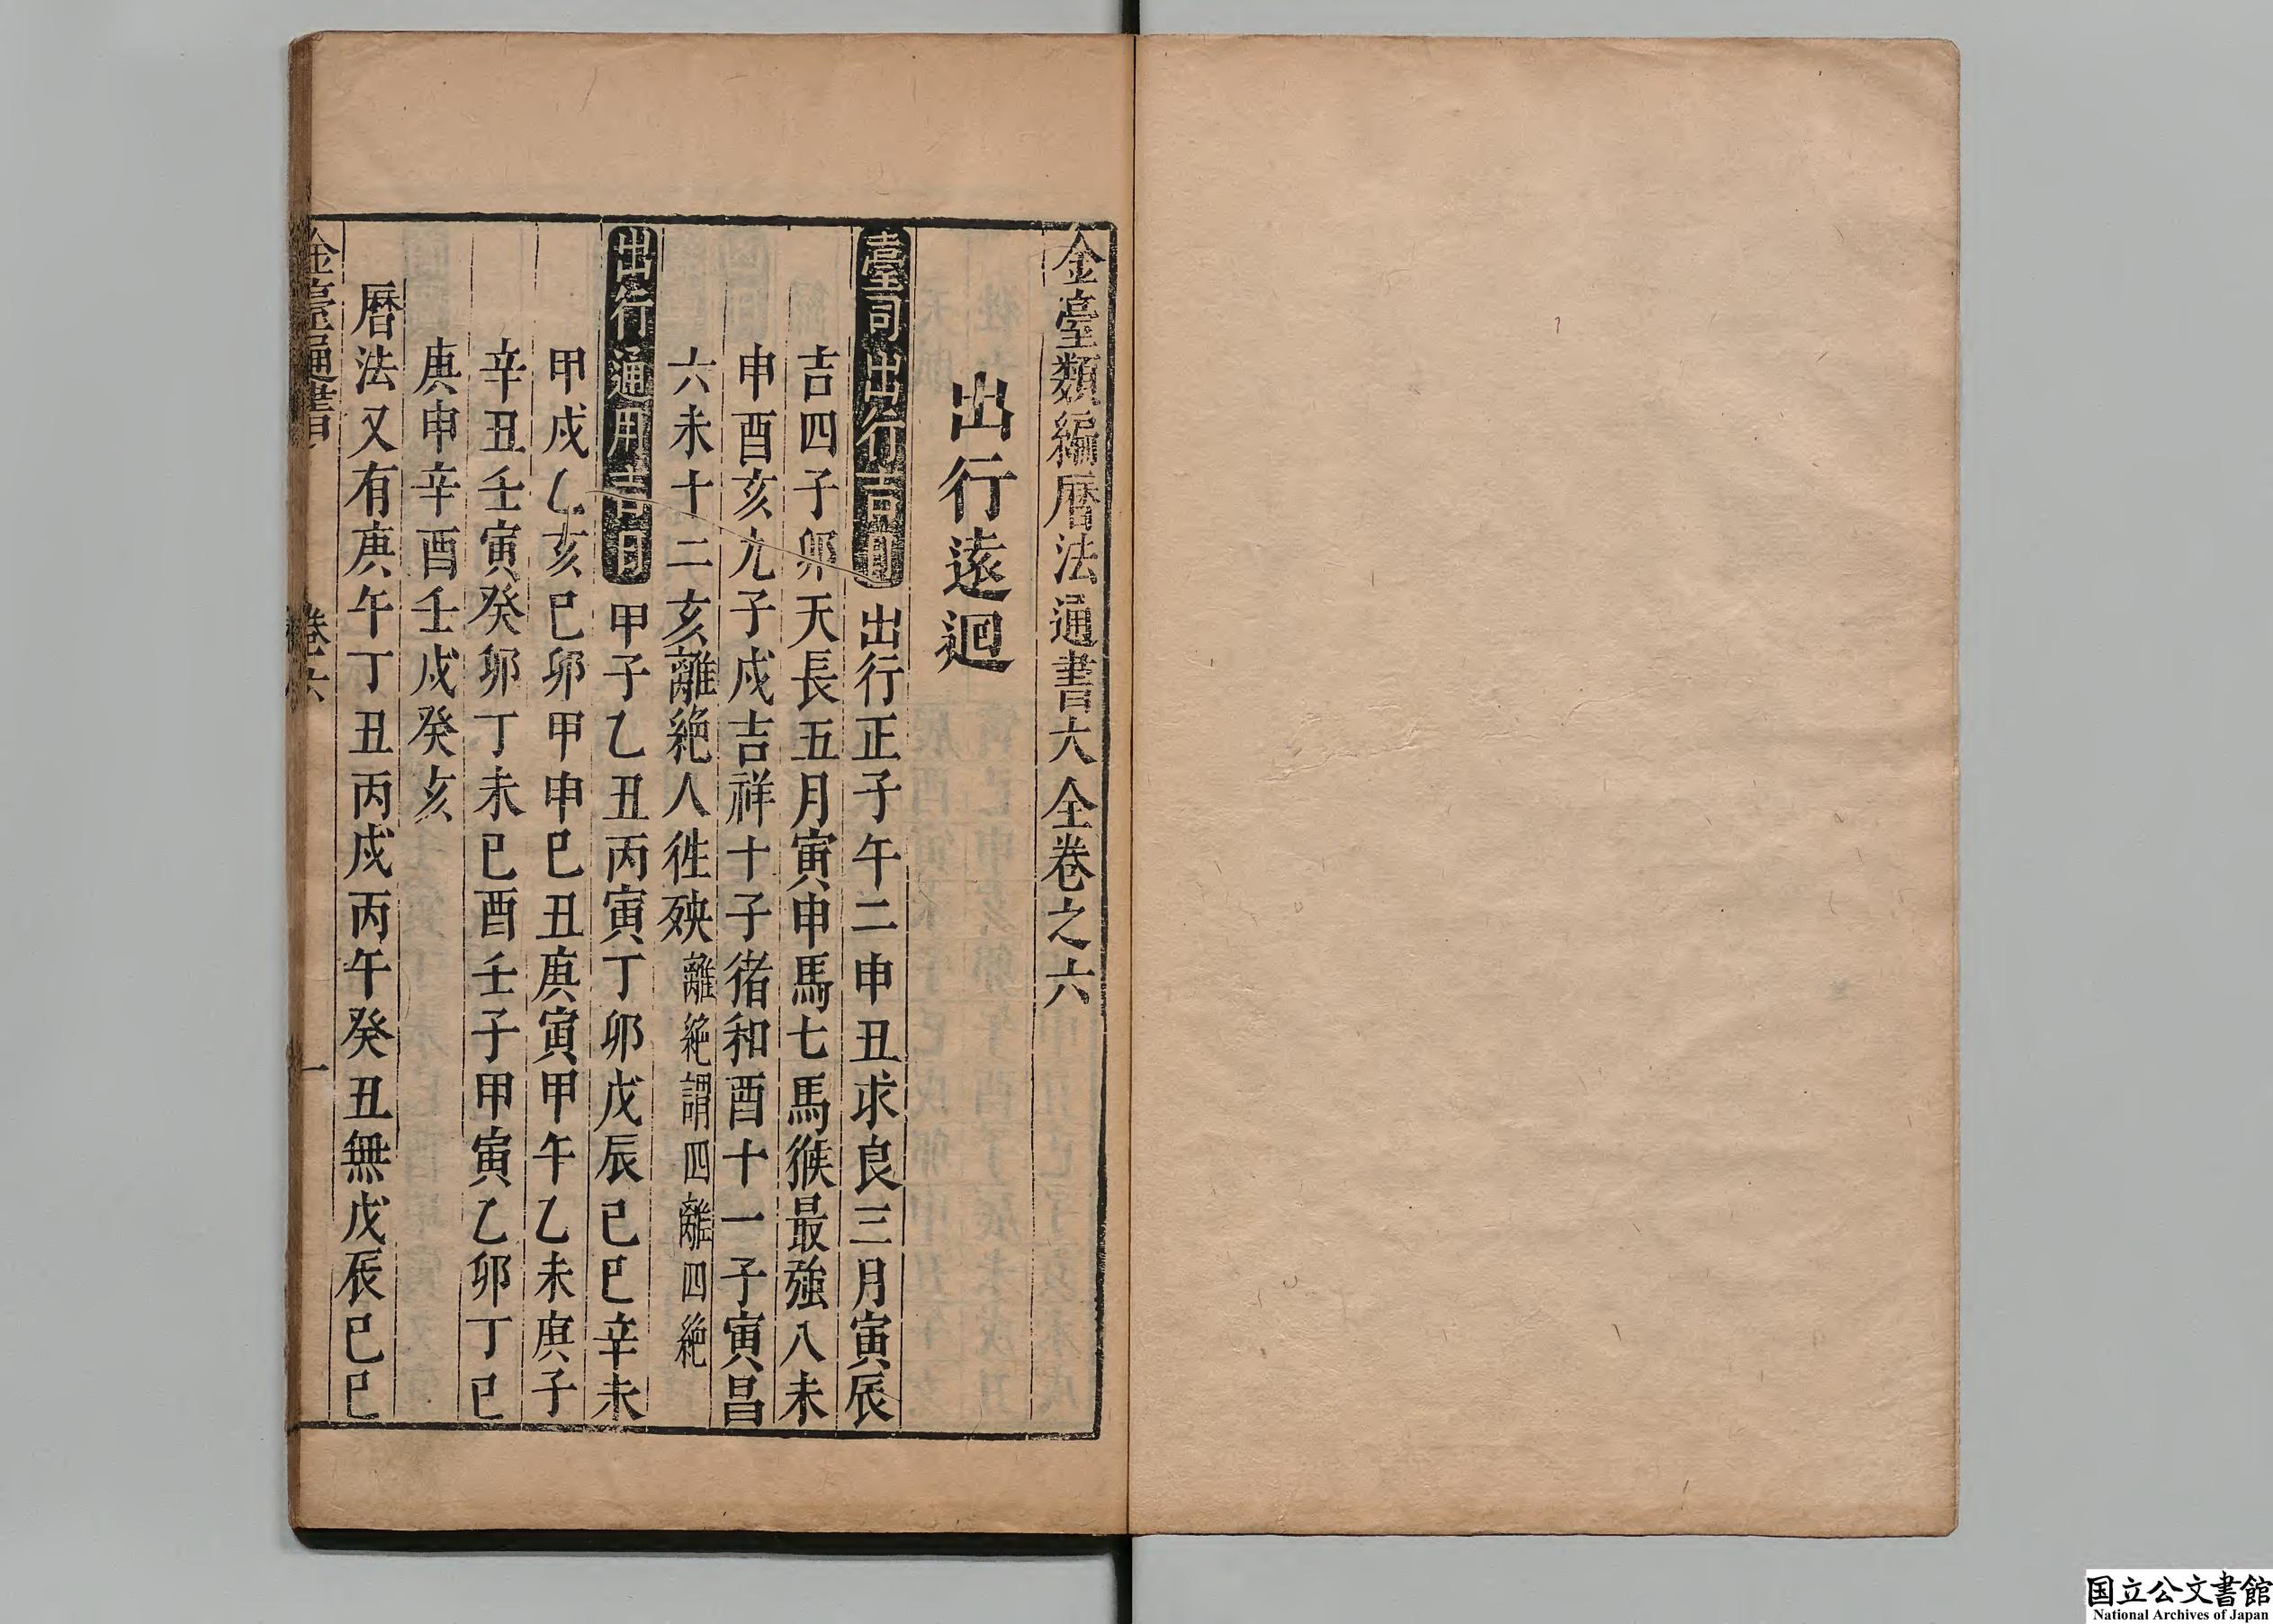 金臺類編暦法通書大全卷之六
出行逺迴
臺司出行吉日 出行正子午二申丑求良三月寅辰
吉四子卯天長五月寅申馬七馬猴最強八未
申酉亥九子戍吉祥十子猪和酉十一子寅昌
六未十二亥離絶人徃殃 離絶謂四離四絶
出行通用吉日 甲子乙丑丙寅丁卯戊辰己巳辛未
甲戍乙亥己卯甲申巳丑庚寅甲午乙未庚子
辛丑壬寅癸卯丁未己酉壬子甲寅乙卯丁巳
庚申辛酉壬戍癸亥
暦法又有庚午丁丑丙戍丙午癸丑無戊辰己巳
金臺通書 卷六 一
国立公文書館
National Archives of Japan